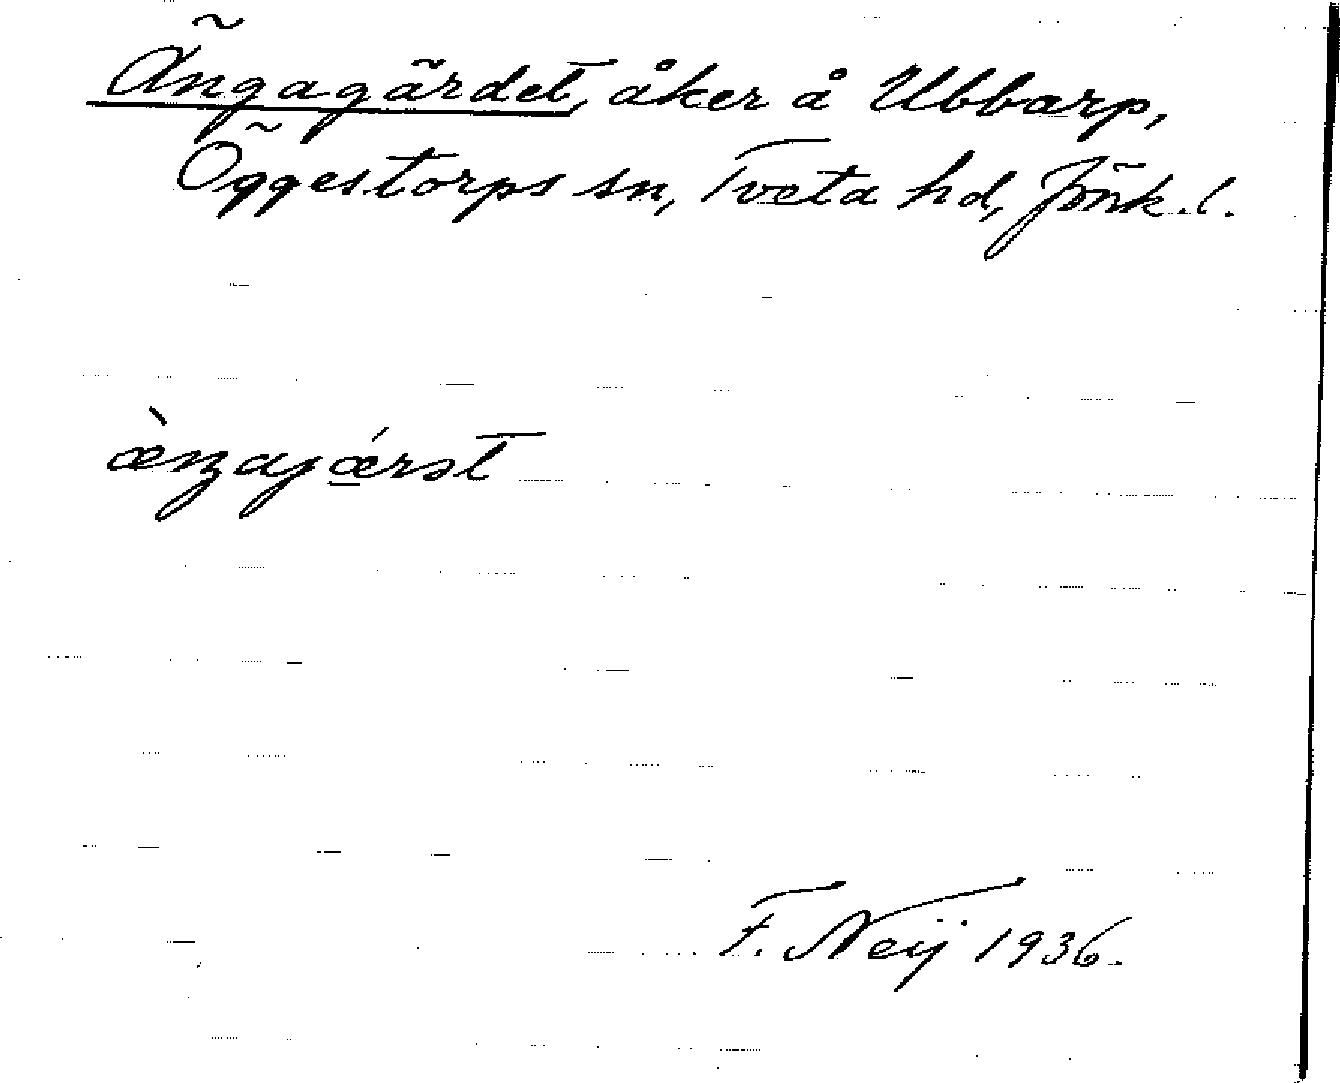 Ängagärdet, åker å Ubbarp,
Öggestorps sn, Tveta hd, Jönk. l.
æ̀ŋajǽrət
F. Neij 1936.